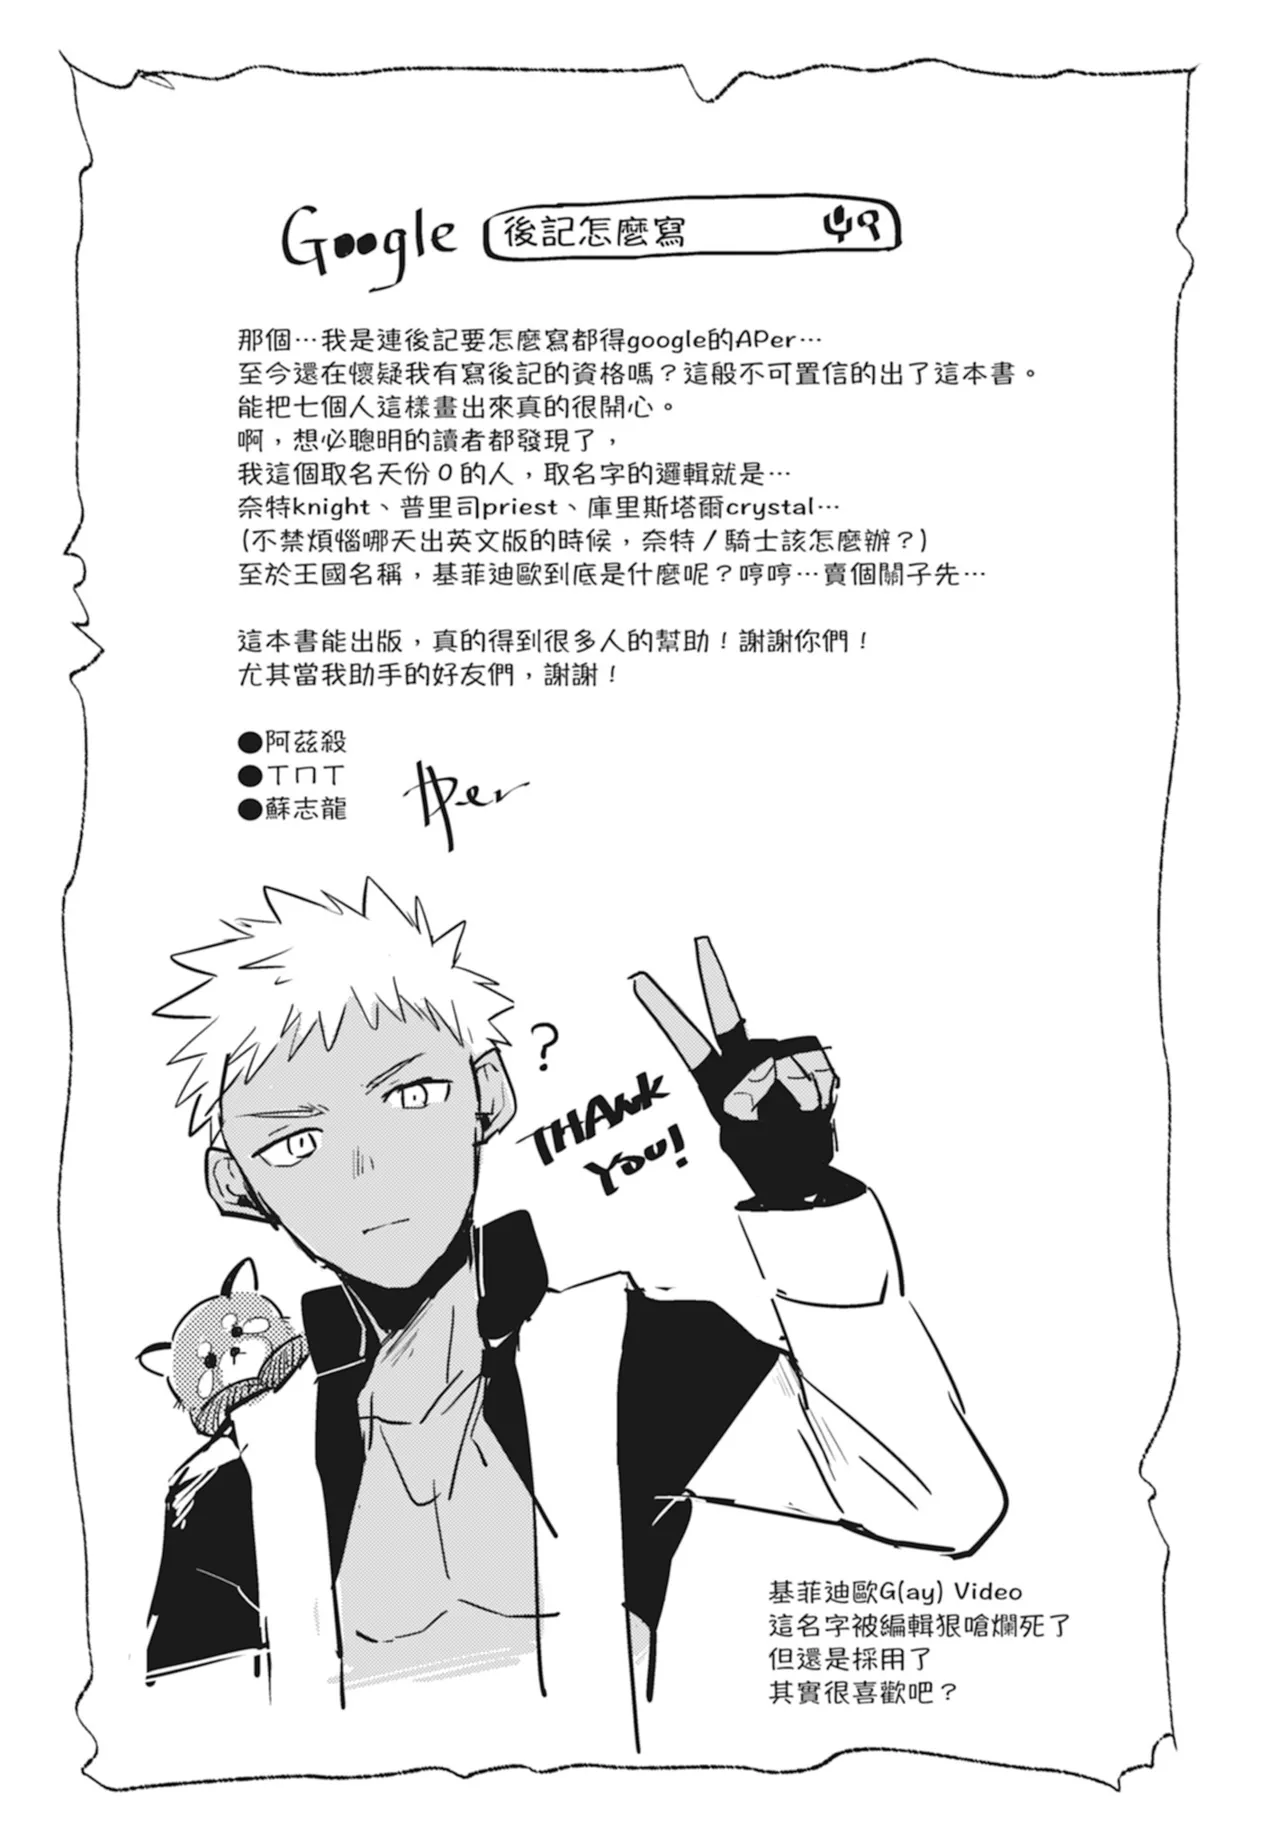 Google 後記怎麼寫
那個…我是連後記要怎麼寫都得google的APer…
至今還在懷疑我有寫後記的資格嗎？這般不可置信的出了這本書。
能把七個人這樣畫出來真的很開心。
啊，想必聰明的讀者都發現了，
我這個取名天份０的人，取名字的邏輯就是…
奈特knight、普里司priest、庫里斯塔爾crystal…
(不禁煩惱哪天出英文版的時候，奈特／騎士該怎麼辦？)
至於王國名稱，基菲迪歐到底是什麼呢？哼哼…賣個關子先…
這本書能出版，真的得到很多人的幫助！謝謝你們！
尤其當我助手的好友們，謝謝！
●阿茲殺
●ㄒㄇㄒ
●蘇志龍
APer
?
THANK
YOU!
基菲迪歐G(ay) Video
這名字被編輯狠嗆爛死了
但還是採用了
其實很喜歡吧？